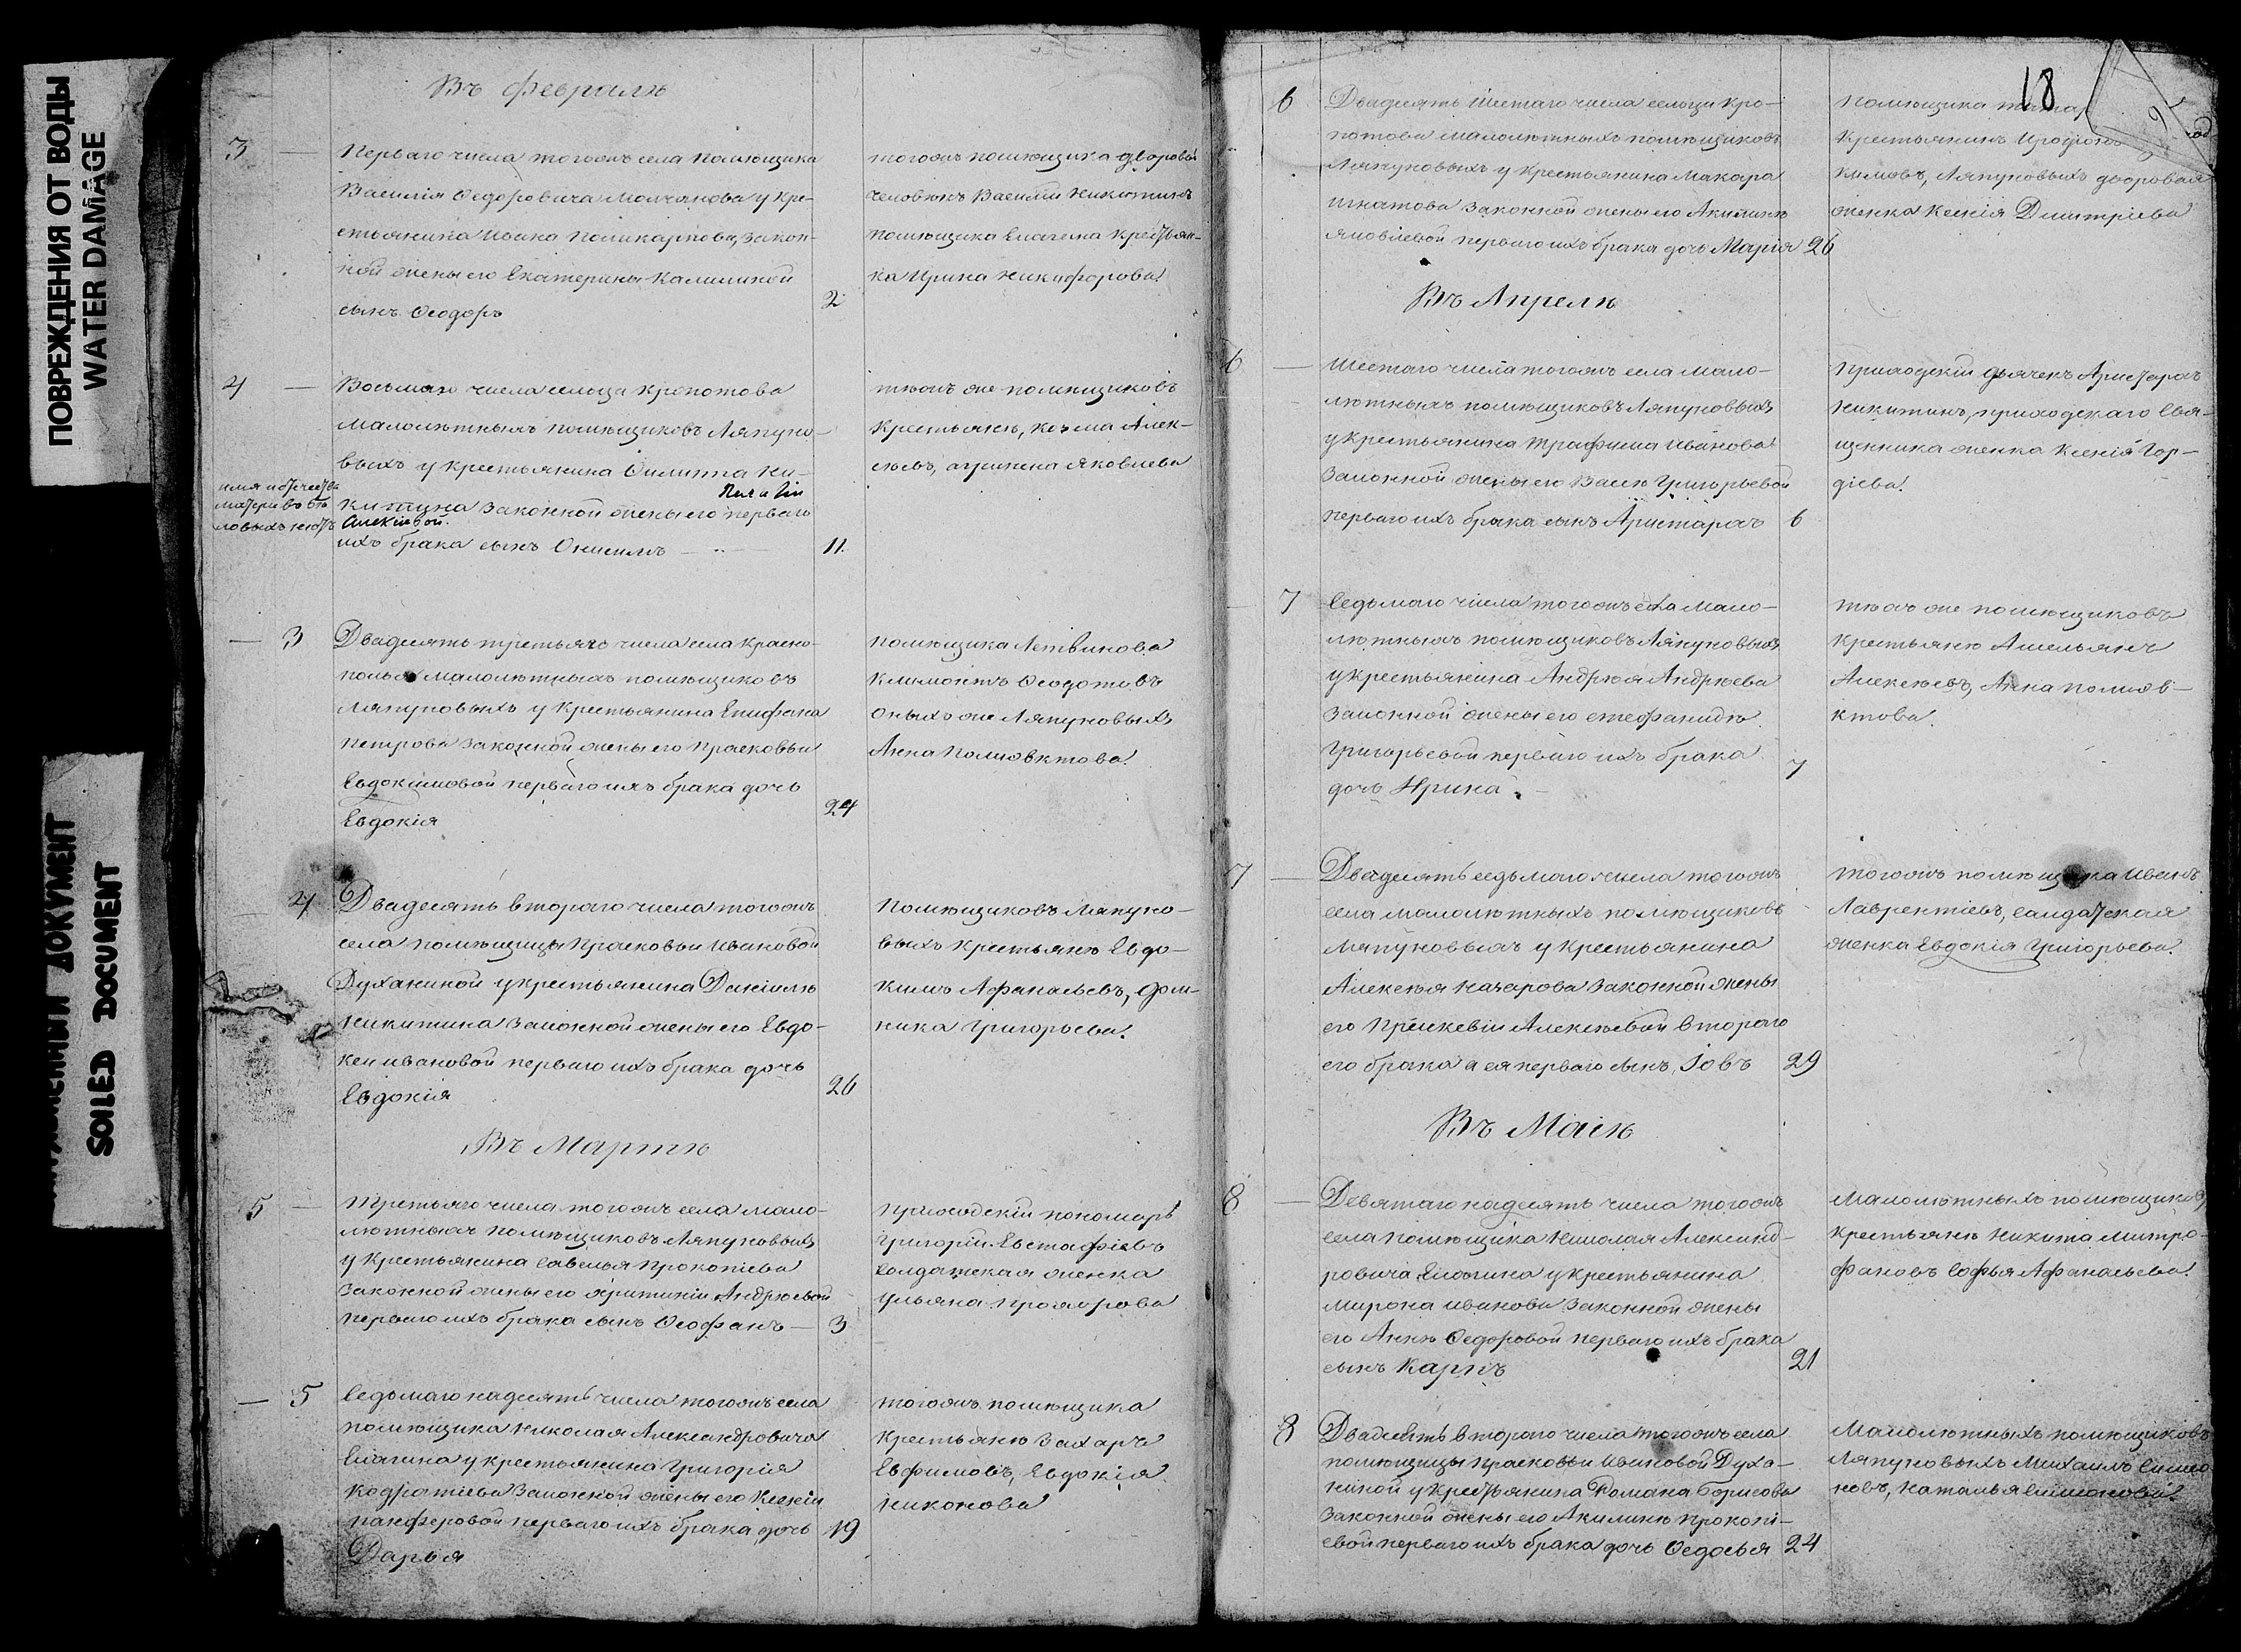 ПОВРЕЖДЕНИЯ ОТ ВОДЫ
WATER DAMAGE
ДОКУМЕНТ
SOILED DOCUMENT
Въ Февралѣ
3 — Перваго числа тогожъ села помѣщика
Василія Ѳедоровича Молчанова у кре-
стьянина Ивана Поликарпова, закон-
ной жены его Екатерины Калининой
сынъ Ѳеодоръ
2
тогожъ помѣщика дворовой
человѣкъ Василий Никитинъ
помѣщика Елагина крестьян-
ка Ирина Никифорова.
4 — Восьмаго числа сельца Кропотова
малолѣтныхъ помѣщиковъ Ляпуно-
выхъ у крестьянина Филиппа Ни-
китина законной жены его перваго
Алексіевой.
ихъ брака сынъ Онисимъ —
11.
имя и отечества
матери
тѣхъ же помѣщиковъ
крестьяне, Козма Алек-
сѣевъ, Агрипена Яковлева
— 3 Двадесять третьяго числа села Красно-
полья малолѣтныхъ помѣщиковъ
Ляпуновыхъ у крестьянина Епифана
Петрова законной жены его Прасковьи
Евдокимовой перваго ихъ брака дочь
Евдокія
24
помѣщика Летвинова
Климонтъ Ѳеодотовъ
оныхъ же Ляпуновыхъ
Анна Полиовктова.
— 4 Двадесять втораго числа тогожъ
села помѣщицы Прасковьи Ивановой
Духаниной у крестьянина Даніила
Никитина законной жены его Евдо-
кеи Ивановой перваго ихъ брака дочь
Евдокія
26
Помѣщиковъ Ляпуно-
выхъ крестьяне Евдо-
кимъ Афанасьевъ, Дом-
ника Григорьева.
Въ Мартѣ
5 — Третьяго числа тогожъ села мало-
лѣтныхъ помѣщиковъ Ляпуновыхъ
у крестьянина Савелья Прокопіева
законной жены его Христиніи Андрѣевой
перваго ихъ брака сынъ Ѳеофанъ — 3
приходскій пономарь
Григорій Евстафіевъ
солдатская женка
Ульяна Прохорова
— 5 Седьмаго надесять числа тогожъ села
помѣщика Николая Александровича
Елагина у крестьянина Григорія
Кодратіева законной жены его Ксеніи
Панферовой перваго ихъ брака дочь 19
Дарья
тогожъ помѣщика
крестьяне Захаръ
Евфимовъ, Евдокія
Никонова
18
6 Двадесять шестаго числа сельца Кро-
потова малолѣтныхъ помѣщиковъ
Ляпуновыхъ у крестьянина Макара
Игнатова законной жены его Акилины
Яковлевой перваго ихъ брака дочь Марія 26
Помѣщика
крестьянинъ Иродіонъ
кимовъ, Ляпуновыхъ дворовая
женка Ксенія Дмитріева
Въ Апрелѣ
6 — Шестаго числа тогожъ села мало-
лѣтныхъ помѣщиковъ Ляпуновыхъ
у крестьянина Трафима Иванова
законной жены его Вассы Григорьевой
перваго ихъ брака сынъ Аристархъ 6
Приходскій дьячекъ Аристархъ
Никитинъ, приходскаго свя-
щенника женка Ксенія Гор-
діева.
— 7 Седьмаго числа тогожъ села мало-
лѣтныхъ помѣщиковъ Ляпуновыхъ
у крестьянина Андрѣя Андрѣева
законной жены его Стефаниды
Григорьевой перваго ихъ брака
дочь Ирина.
7
тѣхъ же помѣщиковъ
крестьяне Амельянъ
Алексѣевъ, Анна Полиов-
ктова.
7 — Двадесять седьмаго числа тогожъ
села малолѣтныхъ помѣщиковъ
Ляпуновыхъ у крестьянина
Алексѣя Назарова законной жены
его Прасковіи Алексѣевой втораго
его брака а ея перваго сынъ Іовъ 29
тогожъ помѣщика Иванъ
Лаврентіевъ, салдатская
женка Евдокія Григорьева.
Въ Маіѣ
8 — Девятаго надесять числа тогожъ
села помѣщика Николая Александ-
ровича Елагина у крестьянина
Мирона Иванова законной жены
его Анны Ѳедоровой перваго ихъ брака
сынъ Карпъ
21
Малолѣтныхъ помѣщиковъ
крестьяне Никита Митро-
фановъ Софья Афанасьева.
8 Двадесять втораго числа тогожъ села
помѣщицы Прасковьи Ивановой Духа-
ниной у крестьянина Романа Борисова
законной жены его Акилины Прокопі-
евой перваго ихъ брака дочь Ѳедосья 24
Малолѣтныхъ помѣщиковъ
Ляпуновыхъ Михаилъ Симео-
новъ, Наталья Симеонова.